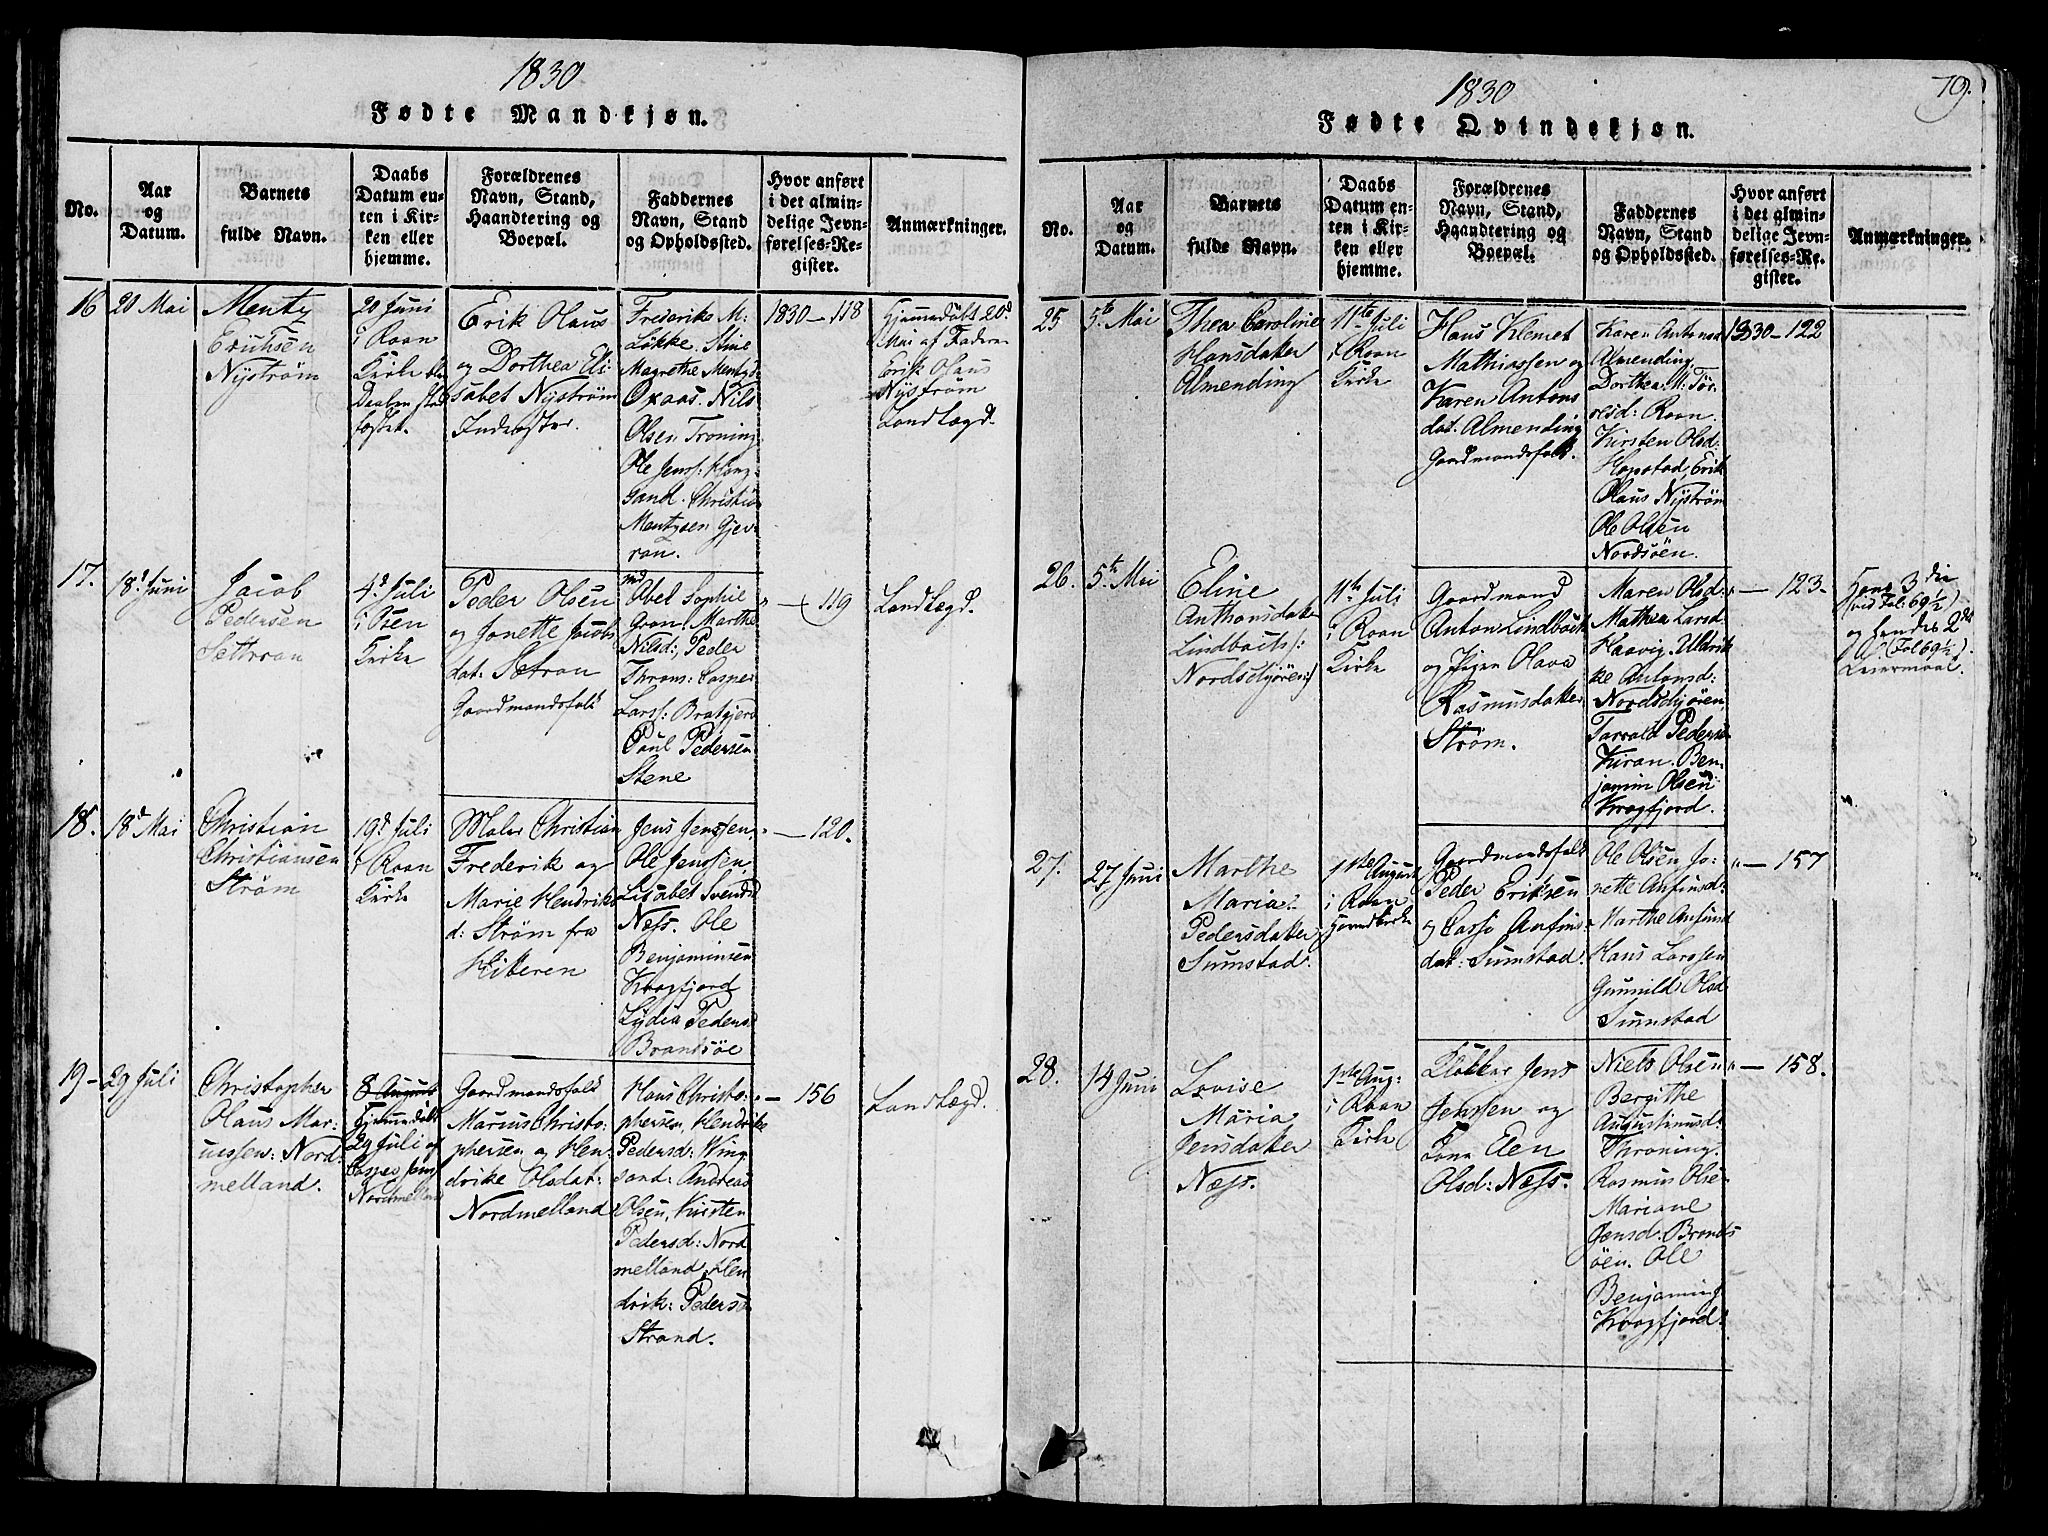 1830
Fødte Mandkjøn.
No.
Aar
og
Datum.
Barnets
fulde Navn.
Daabs
Datum en-
ten i Kir-
ken eller
hjemme.
Forældrenes
Navn, Stand,
Haandtering og
Boepæl.
Faddernes
Navn, Stand
og Opholdssted.
Hvor anført
i det almin-
delige Jevn-
førelses-Re-
gister.
Anmærkninger.
16
20 Mai
Mentz
Erichsen
Nÿstrøm
20 Juni
i Roan
Kirke
Daaben stad
fæstet.
Erik Olaus
og Dorthea Eli-
sabet Nÿstrøm
Inderster.
Frederike M.
Løkke. Stine
Magrethe Mentzd
Oxaas. Nils
Olsen Troning
Ole Jenss:
sand. Christian
Mentzsen Gjev-
ran.
1830 — 118
Hjemmedøbt 20d
Mai af Faderen
Erik Olaus
Nÿstrøm
Landlægd.
17.
18d Juni
Jacob
Pedersen
Settran
4d Juli
i Osen
Kirke
Peder Olsen
og Jonette Jacobs
dat. Sætran
Gaardmandsfolk
Md
Abel Sophie
Gran, Marthe
Nilsd:, Peder
Thrans: Casper
Larss: Bratgjerd
Paul Pedersen
Stene
" — 119
Landlægd.
18.
18d Mai
Christian
Christiansen
Strøm
19d Juli
i Roan
Kirke
Maler Christian
Frederik og
Marie Hendriks
d: Strøm fra
Hitteren
Jens Jenssen,
Ole Jenssen,
Lisabet Svendsd
Næss. Ole
Benjaminsen
Kragfjord
Lÿdia Pedersd
Brandsøe
" — 120.
19 —
29 Juli
Christopher
Olaus Mar-
iussen: Nord-
melland.
8 August
Hjemmedøbt
29 Juli af
Casper Jens
Nordmelland
Gaardmandsfolk
Marius Christo-
phersen og Hen-
drike Olsdat:
Nordmelland
Hans Christo-
phersen, Hendrike
Pedersd: Wing-
sand: Andreas
Olsen, Kirsten
Pedersd: Nord
melland, Hen
drik: Pedersd
Strand.
" — 156
Landlægd.
1830
79.
Fødte Qvindekjøn.
No.
Aar
og
Datum.
Barnets
fulde Navn.
Daabs
Datum en-
ten i Kir-
ken eller
hjemme.
Forældrenes
Navn, Stand,
Haandtering og
Boepæl.
Faddernes
Navn, Stand
og Opholdssted.
Hvor anført
i det almin-
delige Jevn-
førelses-Re-
gister.
Anmærkninger.
25
5te Mai
Thea Caroline
Hansdatter
Almending
11te Juli
i Roan
Kirke
Hans Klemet
Mathiassen og
Karen Antons
dat. Almending
Gaardmandsfolk.
Karen Antonsd
Almending
Dorthea M: Tør-
resd: Roan
Kirsten Olsd:
Hopstad, Erik
Olaus Nÿstrøm
Ole Olsen
Nordsöen.
1830 — 122
26.
5te Mai
Eline
Anthonsdatter
Lindbach/:
Nordskjøren:/
11te Juli
i Roan
Kirke
Gaardmand
Anton Lindback
og Pigen Olava
Rasmusdatter
Strøm.
Maren Olsd:
Mathea Larsd
Haavig. Uldrik-
ke Antonsd:
Nordskjøren
Tarrald Peders
Kiran. Ben-
jamin Olsen
Kragfjord.
" — 123.
Hans 3die
(vid Fol: 69½)
og hendes 2det
(Fol 69½).
Leiermaal.
27.
27 Juni
Marthe
Maria
Pedersdatter
Sumstad.
1ste August
i Roan
Hovedkirke
Gaardmandsfolk
Peder Eriksen
og Lasse Anfins-
dat: Sumstad
Ole Olsen Jo-
nette Anfinsd:
Marthe Anfinsd
Hans Larssen
Gunnild Olsd
Sumstad
" — 157
28.
14 Juni
Lovise
Maria
Jensdatter
Næss.
1ste Aug:
i Roan
Kirke
Klokker Jens
Jenssen og
Kone Elen
Olsd: Næss.
Niels Olsen
Bergithe
Augustinusd:
Throning.
Rasmus Olse
Mariane
Jensd. Brands
öen. Ole
Benjamins
Kragfjord.
" — 158.